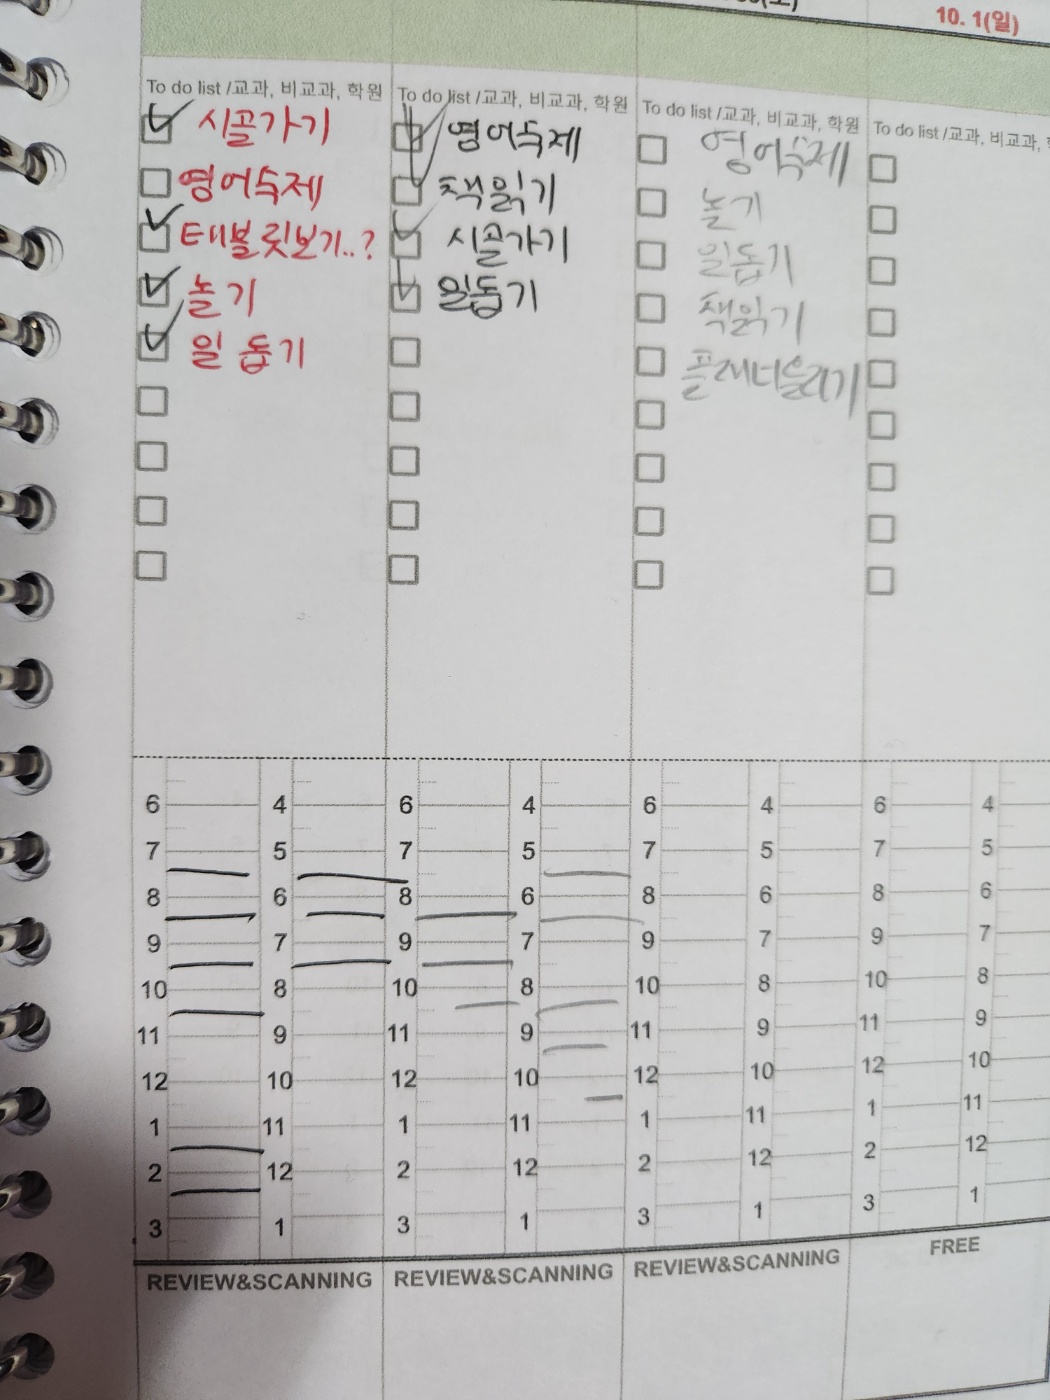 10. 1(일)
To do list /교과, 비교과, 학원
시골가기
영어숙제
태블릿보기..?
놀기
일 돕기
To do list /교과, 비교과, 학원
영어숙제
책읽기
시골가기
일돕기
To do list /교과, 비교과, 학원
영어숙제
놀기
일돕기
책읽기
플래너올리기
To do list /교과, 비교과,
6 4 6 4 6 4 6 4
7 5 7 5 7 5 7 5
8 6 8 6 8 6 8 6
9 7 9 7 9 7 9 7
10 8 10 8 10 8 10 8
11 9 11 9 11 9 11 9
12 10 12 10 12 10 12 10
1 11 1 11 1 11 1 11
2 12 2 12 2 12 2 12
3 1 3 1 3 1 3 1
REVIEW&SCANNING REVIEW&SCANNING REVIEW&SCANNING FREE